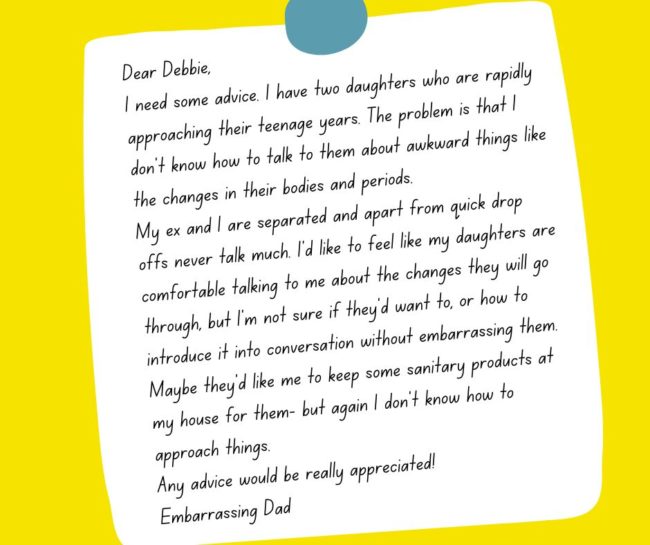 Dear Debbie,
I need some advice. I have two daughters who are rapidly
approaching their teenage years. The problem is that I
don't know how to talk to them about awkward things like
the changes in their bodies and periods.
My ex and I are separated and apart from quick drop
offs never talk much. I'd like to feel like my daughters are
comfortable talking to me about the changes they will go
through, but I'm not sure if they'd want to, or how to
introduce it into conversation without embarrassing them.
Maybe they'd like me to keep some sanitary products at
my house for them- but again I don't know how to
approach things.
Any advice would be really appreciated!
Embarrassing Dad